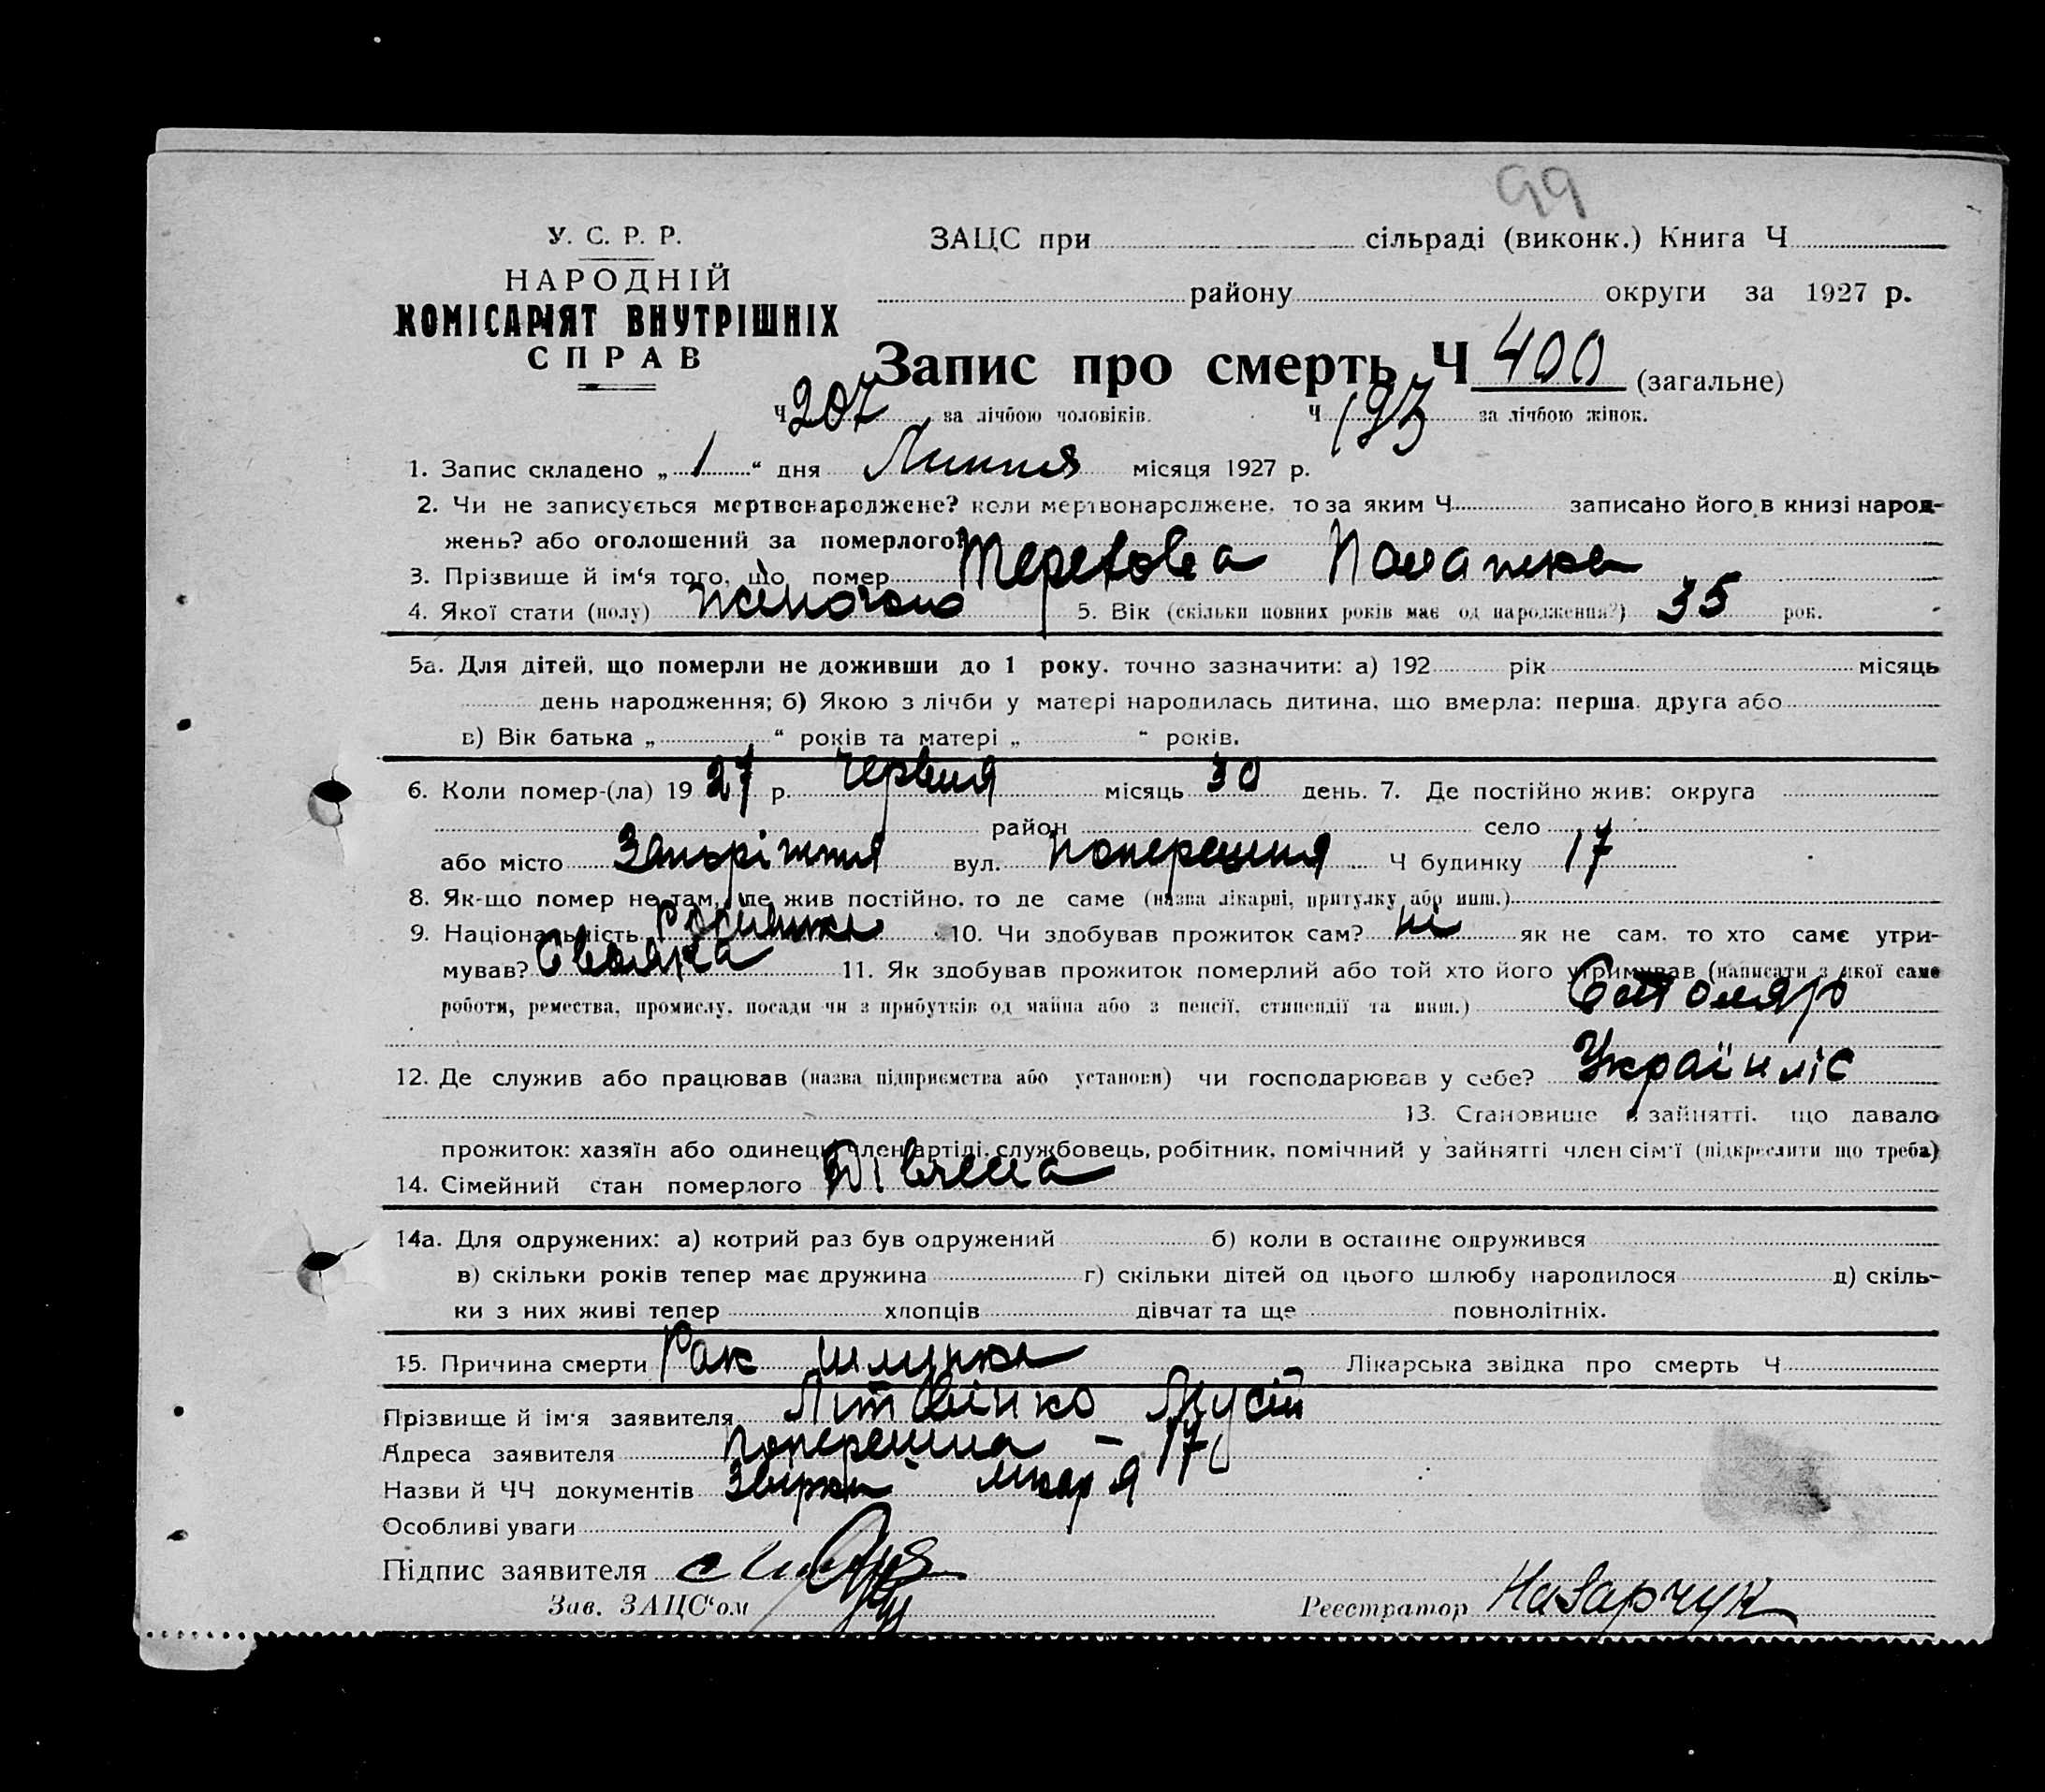 99
У. С. Р. Р.
НАРОДНІЙ
КОМІСАРІЯТ ВНУТРІШНІХ
СПРАВ
ЗАЦС при сільраді (виконк.) Книга Ч
району округи за 1927 р.
Запис про смерть Ч 400 (загальне)
Ч 207 за лічбою чоловіків. Ч 193 за лічбою жінок.
1. Запис складено „ 1 “ дня Липня місяця 1927 р.
2. Чи не записується мертвонароджене? коли мертвонароджене, то за яким Ч записано його в книзі народ-
жень? або оголошений за померлого?
3. Прізвище й ім‘я того, що помер Палажка
4. Якої стати (полу) жіночого 5. Вік (скільки повних років має од народження?) 35 рок.
5а. Для дітей, що померли не доживши до 1 року, точно зазначити: а) 192 рік місяць
день народження; б) Якою з лічби у матері народилась дитина, що вмерла: перша, друга або
в) Вік батька „ “ років та матері „ “ років.
6. Коли помер-(ла) 19 27 р. Червня місяць 30 день. 7. Де постійно жив: округа
район село
або місто Запоріжжя вул. Поперешня Ч будинку 17
8. Як-що помер не там, де жив постійно, то де саме (назва лікарні, притулку або инш.)
9. Національність Росіянка 10. Чи здобував прожиток сам? ні як не сам, то хто саме утри-
мував? Свояка 11. Як здобував прожиток померлий або той хто його утримував (написати з якої саме
роботи, ремества, промислу, посади чи з прибутків од майна або з пенсії, стипендії та инш.) Столяр
12. Де служив або працював (назва підприємства або установи) чи господарював у себе? Українліс
13. Становище в зайнятті, що давало
прожиток: хазяїн або одинець, член артілі, службовець, робітник, помічний у зайнятті член сім‘ї (підкреслити що треба)
14. Сімейний стан померлого Дівчена
14а. Для одружених: а) котрий раз був одружений б) коли в останнє одружився
в) скільки років тепер має дружина г) скільки дітей од цього шлюбу народилося д) скіль-
ки з них живі тепер хлопців дівчат та ще повнолітніх.
15. Причина смерти Рак шлунка Лікарська звідка про смерть Ч
Прізвище й ім‘я заявителя Літвінко Мусій
Адреса заявителя Поперешна – 17
Назви й ЧЧ документів лікаря
Особливі уваги
Підпис заявителя
Зав. ЗАЦС‘ом Реєстратор Назарчук